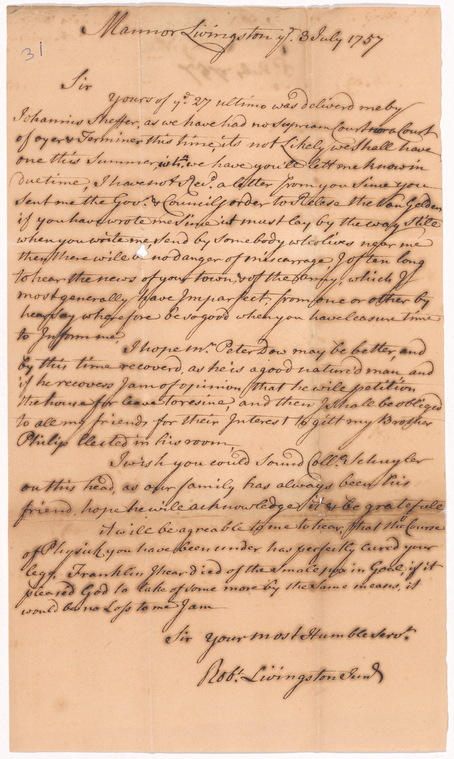 31
Mannor Livingston yᵉ 3 July 1757
Sir
Yours of yᵉ 27 ultimo was deliverd me by
Johannis Sheffer, as we have had no Supriam Court nor a Court
of oyer & Terminer this time, its not Likely we shall have
one this Summer, we have you'll lett me know in
due time, I have not Recᵈ a letter from you Since you
Sent me the Govʳ & Councils order to Relese the Van Gelden
if you have wrote me Since it must lay by the way Still
when you write me send by Somebody who lives near me
then there will be no danger of miscarrage I often long
to hear the news of your town, & of the army, which I
most generally have Imparfect, from one or other by
hear Say wherefore be so good when you have leasure time
to Inform me
I hope mʳ Peter Dow may be better, and
by this time recoverd, as he is a good natured man, and
if he recovers I am of opinion that he will petition
the house for leave to resine, and then I shall be obliged
to all my friends for their Interest to gitt my Brother
Philip Elected in his room
I wish you could Sound Collˡ Schuyler
on this head, as our family has always been his
friend, hope he will acknowledge it & be gratefull
it will be agreable to me to hear, that the Course
of Physick you have been under has perfectly cured your
legg. Franklin I hear died of the Smale pox in Goal, if it
pleased God to take of some more by the Same means, it
would be no Loss to me I am
Sir Your most Humble Servᵗ
Robᵗ Livingston Junʳ